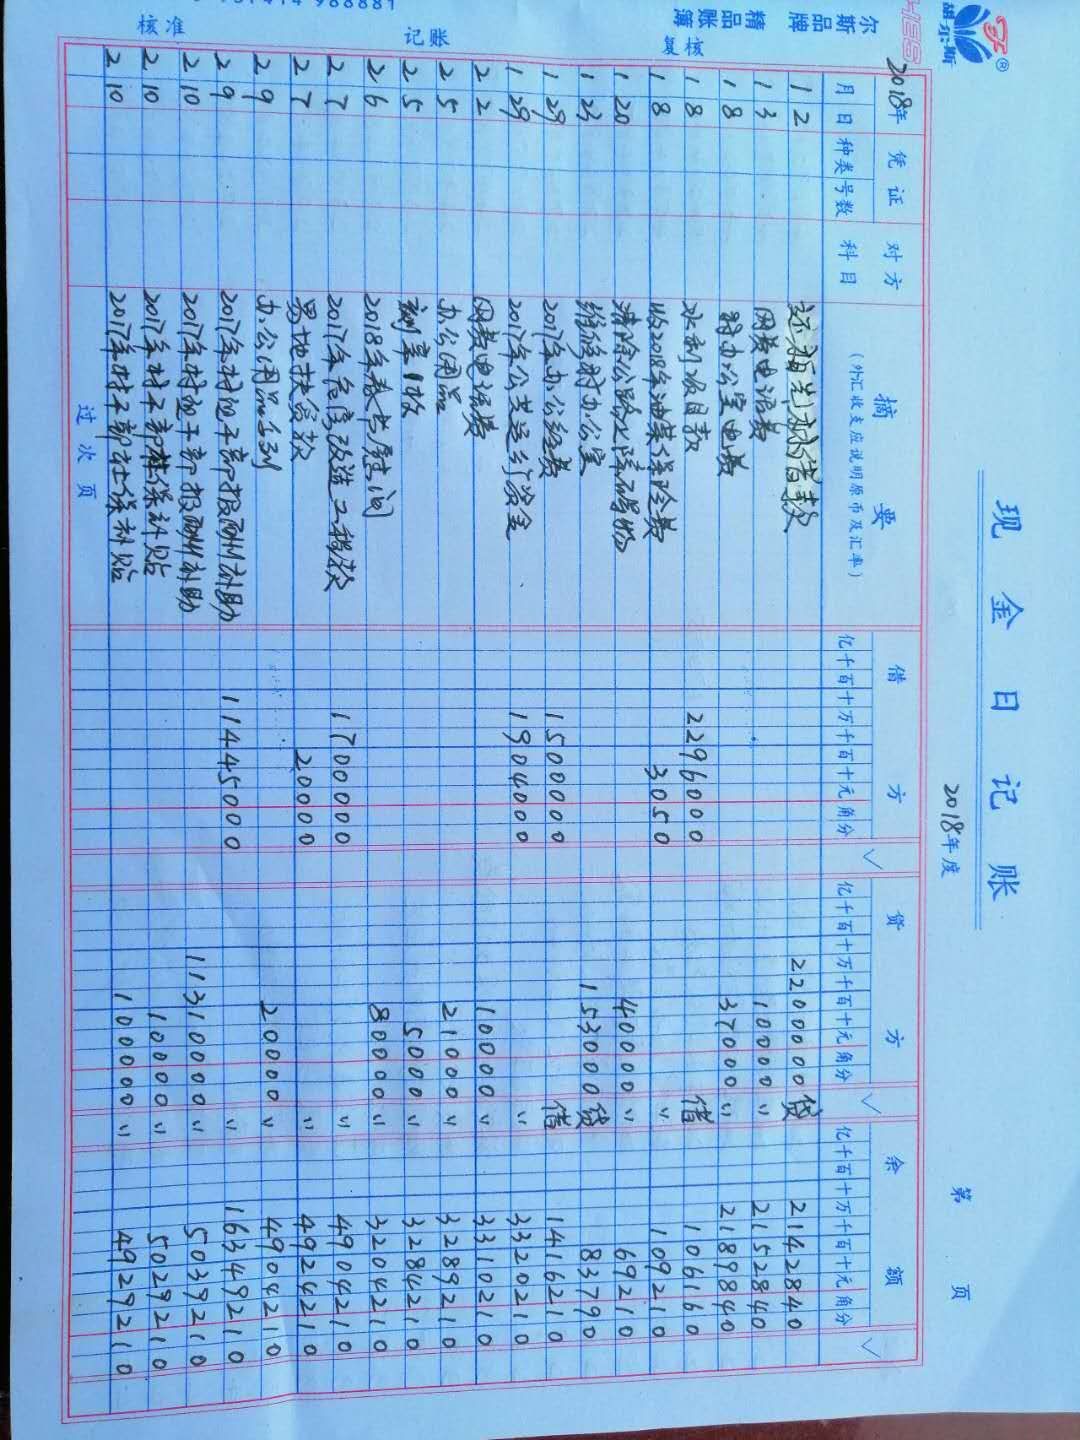 现金日记账
2018年度
第 页
胡尔斯
尔斯品牌 精品账簿
2018年 凭证 对方科目 摘要 借方 √ 贷方 √ 余额 √
月 日 种类 号数 (外汇收支应说明原币及汇率) 亿千百十万千百十元角分 亿千百十万千百十元角分 亿千百十万千百十元角分
1 2 借款 2200000 贷 2142840
1 3 网费电话费 10000 〃 2152840
1 8 村办公室电费 37000 〃 2189840
1 8 水利项目款 2296000 借 106160
1 8 收2018年油菜保险费 3050 〃 109210
1 20 清除公路上障碍物 40000 〃 69210
1 23 维修村办公室 153000 贷 83790
1 29 2017年办公经费 1500000 借 1416210
1 29 2017年公共运行资金 1904000 〃 3320210
2 2 网费电话费 10000 〃 3310210
2 5 办公用品 21000 〃 3289210
2 5 刻章1枚 5000 〃 3284210
2 6 2018年春节慰问 80000 〃 3204210
2 7 2017年危房改造工程款 1700000 〃 4904210
2 7 易地扶贫款 20000 〃 4924210
2 9 办公用品 20000 〃 4904210
2 9 2017年村组干部报酬补助 11445000 〃 16349210
2 10 2017年村组干部报酬补助 11310000 〃 5039210
2 10 2017年村干部保补贴 10000 〃 5029210
2 10 2017年村干部社保补贴 100000 〃 4929210
过次页
核准 记账 复核